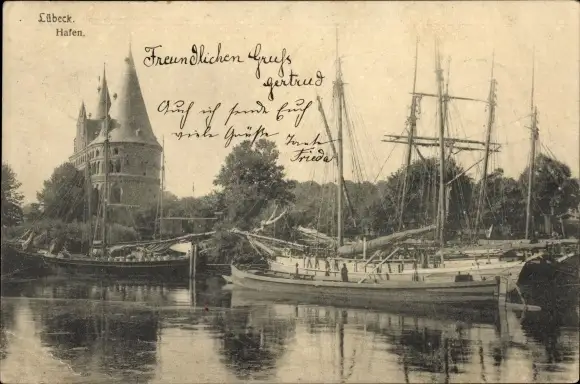 Lübeck.
Hafen.
Freundlichen Gruß
Gertrud
Auch ich sende Euch
viele Grüße Tante
Frieda